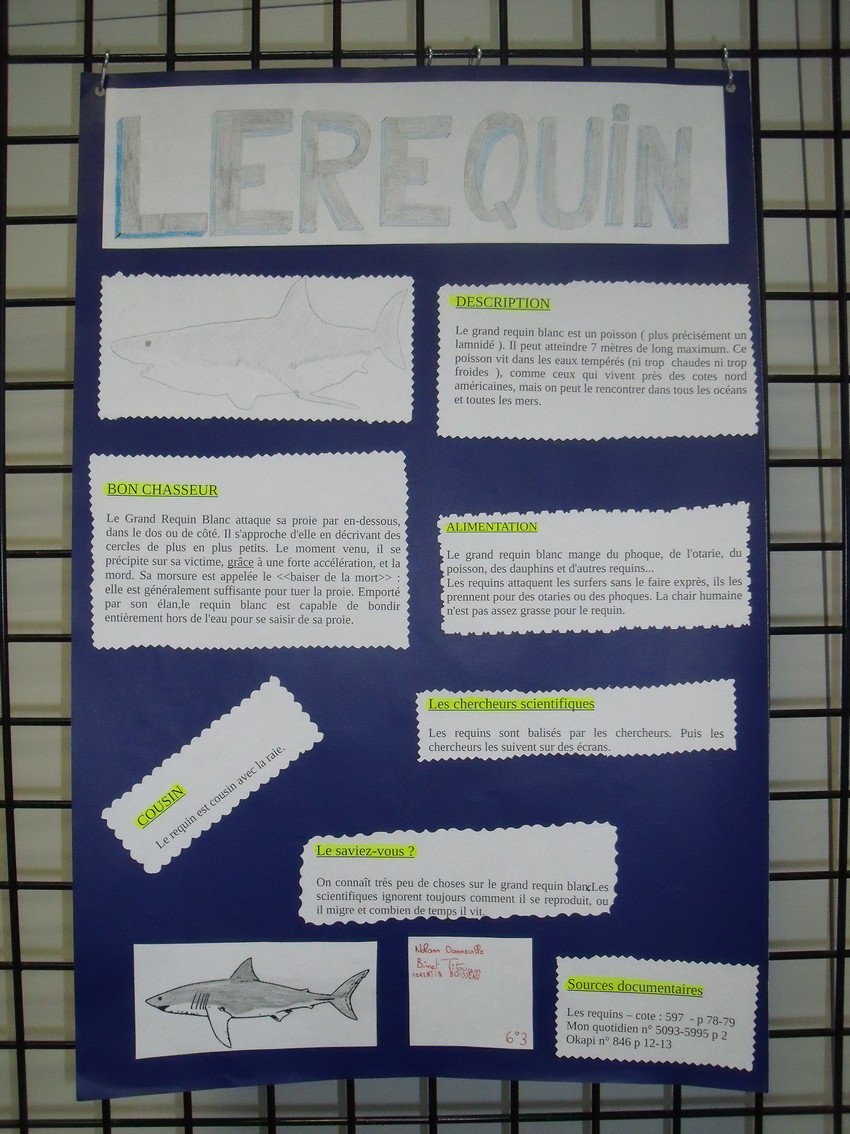 LE REQUIN
DESCRIPTION
Le grand requin blanc est un poisson ( plus précisément un
lamnidé ). Il peut atteindre 7 mètres de long maximum. Ce
poisson vit dans les eaux tempérés (ni trop chaudes ni trop
froides ), comme ceux qui vivent près des cotes nord
américaines, mais on peut le rencontrer dans tous les océans
et toutes les mers.
BON CHASSEUR
Le Grand Requin Blanc attaque sa proie par en-dessous,
dans le dos ou de côté. Il s'approche d'elle en décrivant des
cercles de plus en plus petits. Le moment venu, il se
précipite sur sa victime, grâce à une forte accélération, et la
mord. Sa morsure est appelée le <<baiser de la mort>> :
elle est généralement suffisante pour tuer la proie. Emporté
par son élan,le requin blanc est capable de bondir
entièrement hors de l'eau pour se saisir de sa proie.
ALIMENTATION
Le grand requin blanc mange du phoque, de l'otarie, du
poisson, des dauphins et d'autres requins...
Les requins attaquent les surfers sans le faire exprès, ils les
prennent pour des otaries ou des phoques. La chair humaine
n'est pas assez grasse pour le requin.
Les chercheurs scientifiques
Les requins sont balisés par les chercheurs. Puis les
chercheurs les suivent sur des écrans.
COUSIN
Le requin est cousin avec la raie.
Le saviez-vous ?
On connaît très peu de choses sur le grand requin blanc.Les
scientifiques ignorent toujours comment il se reproduit, ou
il migre et combien de temps il vit.
Nolann
Binet Titouan
CORENTIN BOISSEAU
6°3
Sources documentaires
Les requins – cote : 597 - p 78-79
Mon quotidien n° 5093-5995 p 2
Okapi n° 846 p 12-13